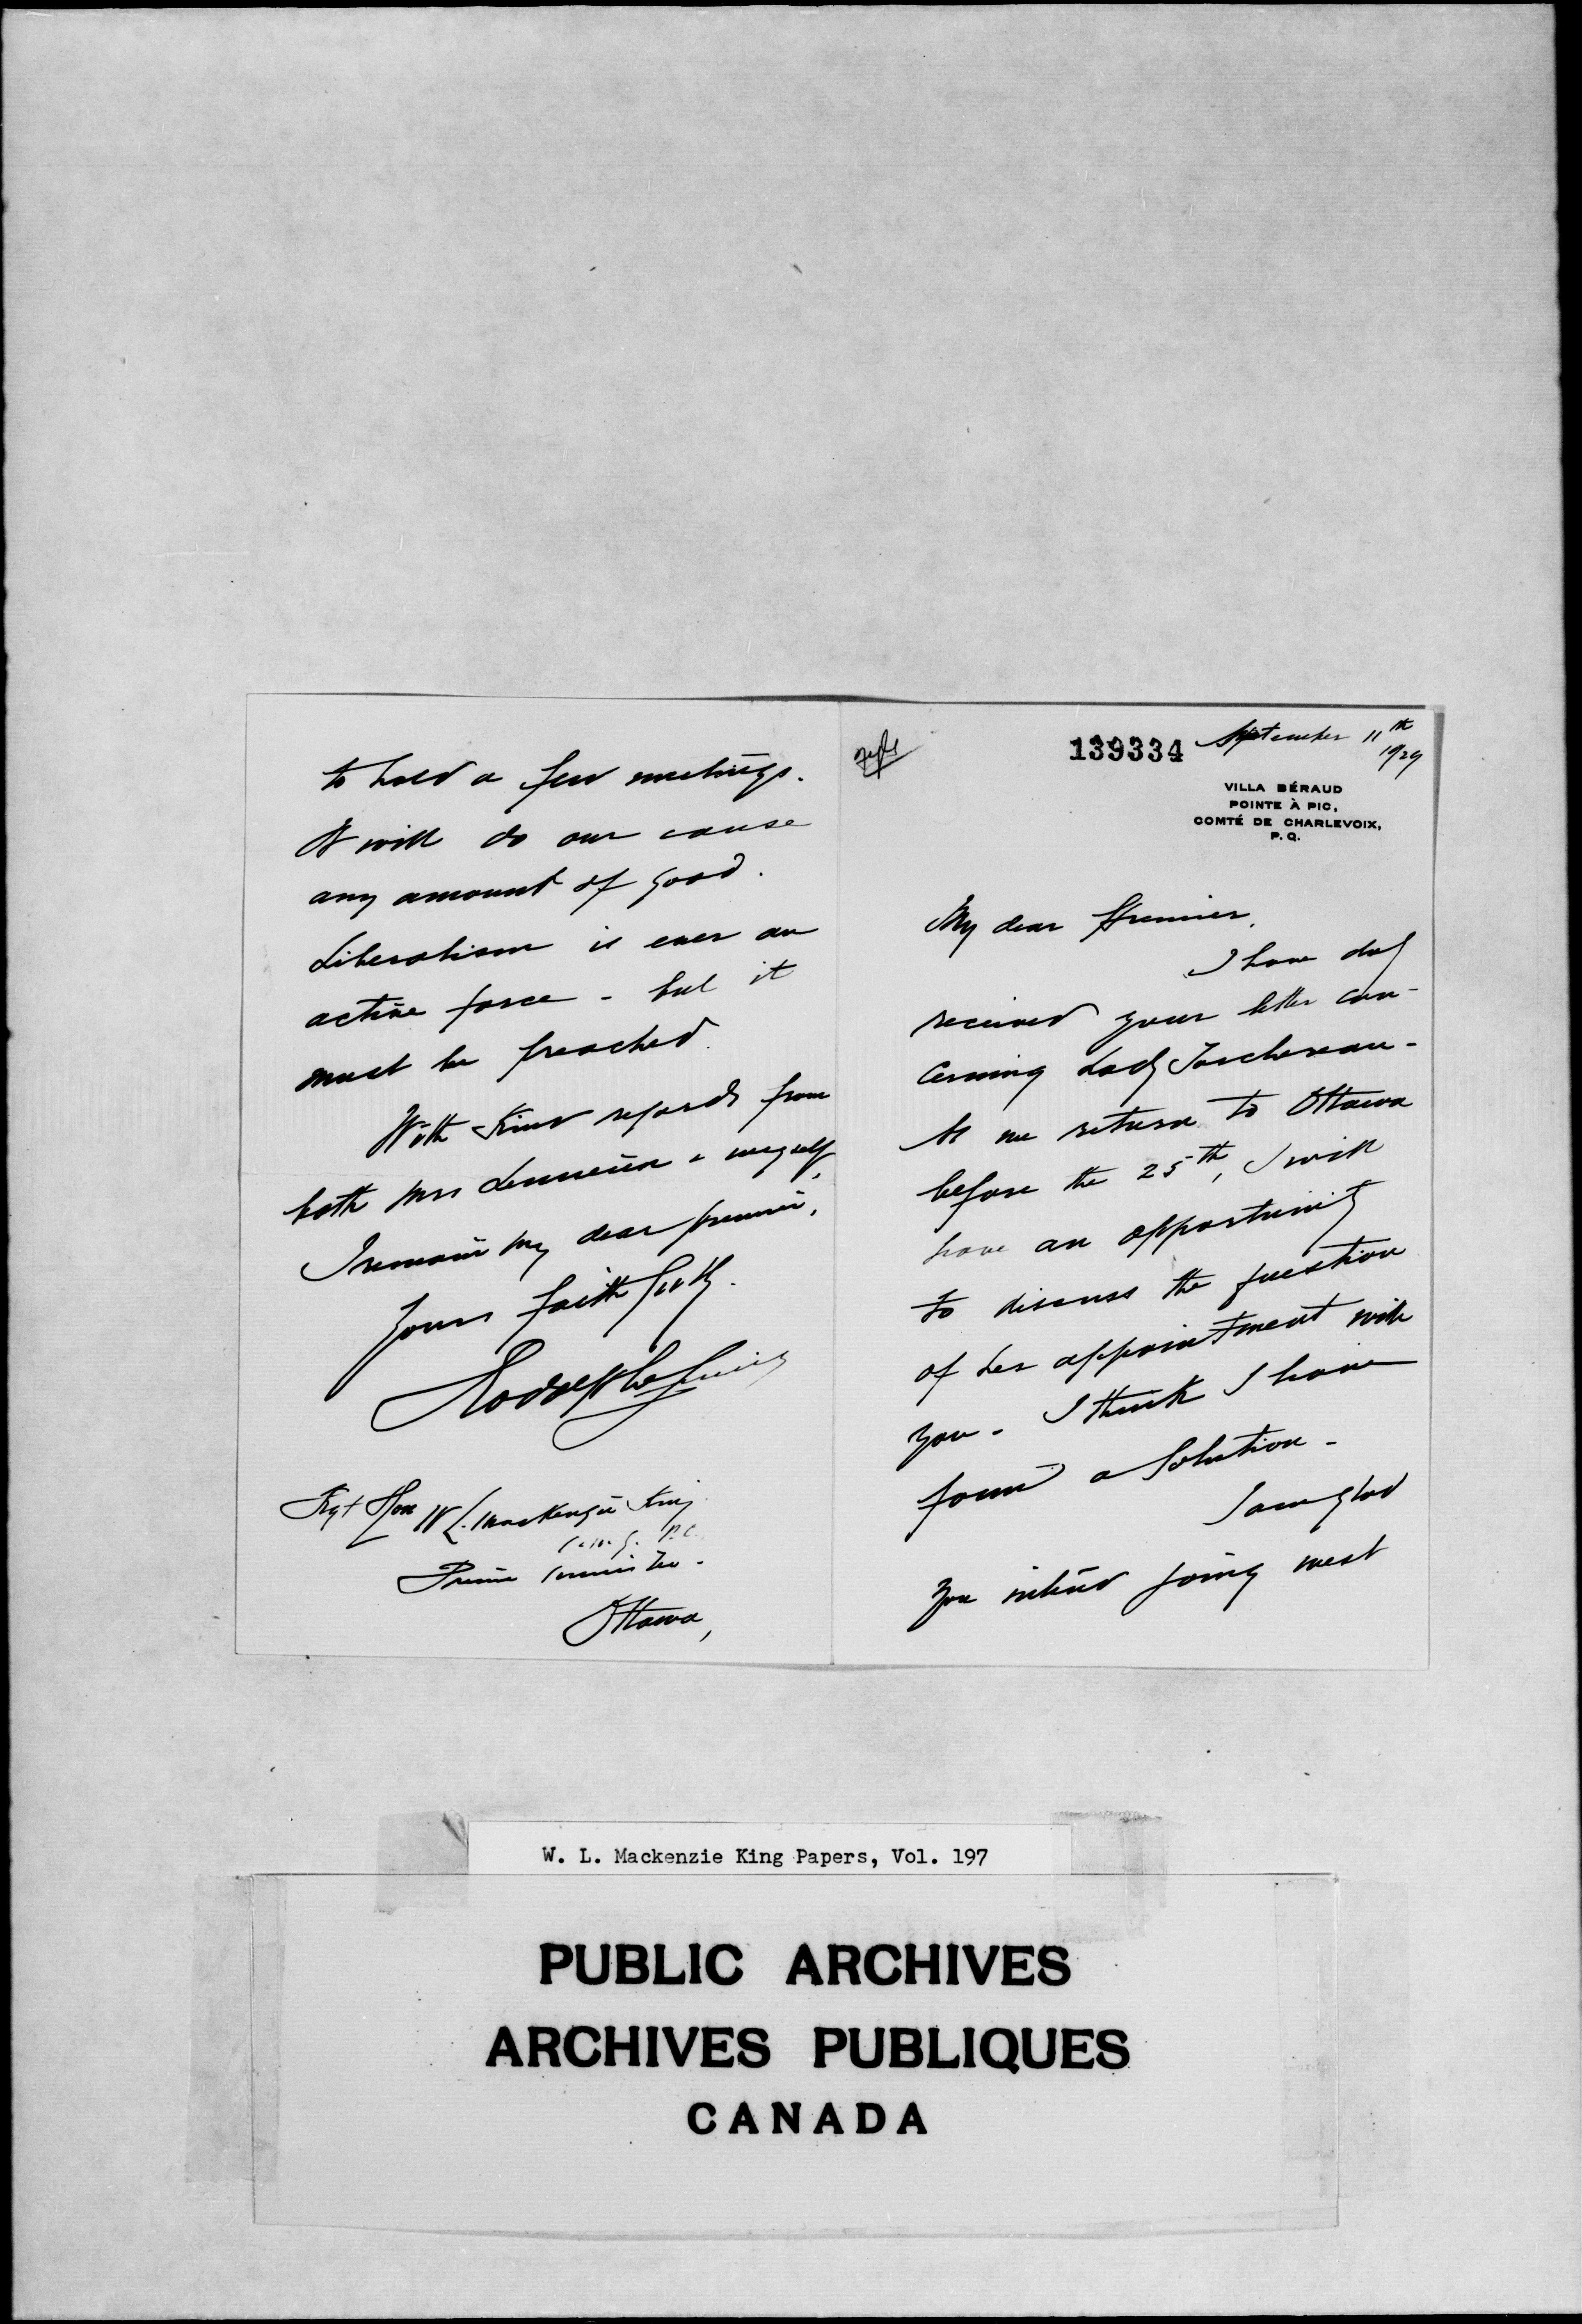 139334
September 11th
1929
VILLA BÉRAUD
POINTE À PIC,
COMTÉ DE CHARLEVOIX,
P. Q.
My dear Premier,
I have duly
received your letter con-
cerning Lady Taschereau -
As we return to Ottawa
before the 25th, I will
have an opportunity
to discuss the question
of her appointment with
you. I think I have
found a solution -
I am glad
you intend going west
to hold a few meetings.
It will do our cause
any amount of good.
Liberalism is ever an
active force - but it
must be preached.
With Kind regards from
both Mrs Lemieux & myself,
I remain my dear premier,
Yours faithfully.
Rodolphe Lemieux
Rgt Hon W L. Mackenzie King
C.M.G. P.C.
Prime Minister -
Ottawa,
W. L. Mackenzie King Papers, Vol. 197
PUBLIC ARCHIVES
ARCHIVES PUBLIQUES
CANADA